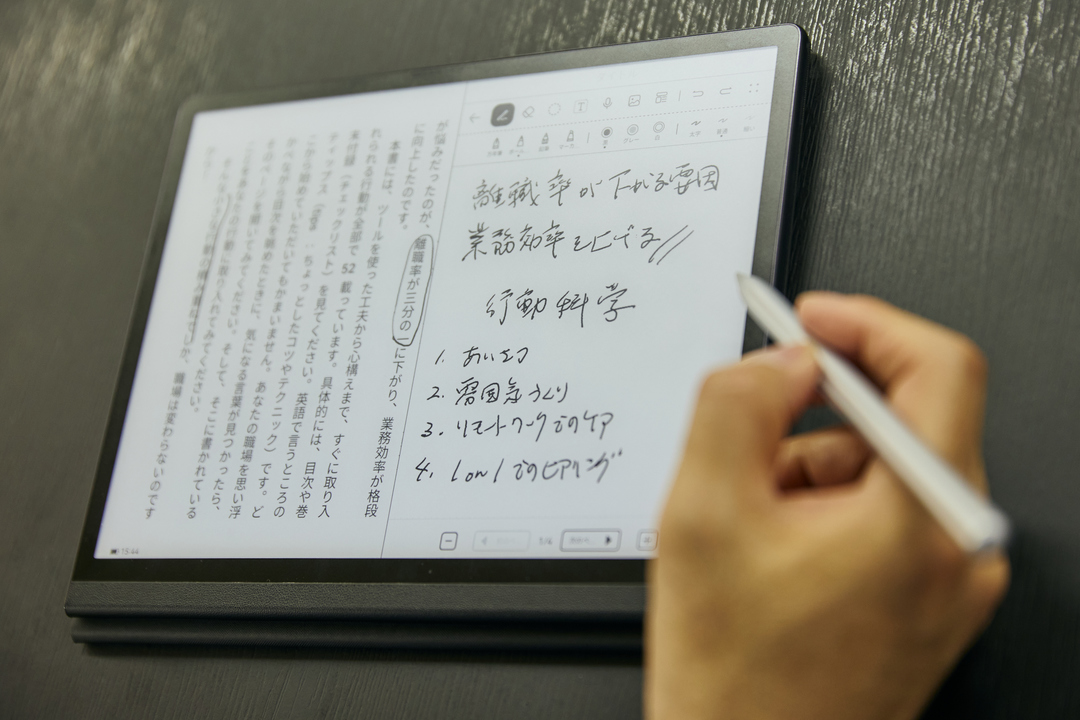 が悩みだったのが、離職率が三分の一に下がり、業務効率が格段
に向上したのです。
本書には、ツールを使った工夫から心構えまで、すぐに取り入
れられる行動が全部で52載っています。具体的には、目次や巻
末付録（チェックリスト）を見てください。英語で言うところの
ティップス（tips：ちょっとしたコツやテクニック）です。ど
こから始めていただいてもかまいません。あなたの職場を思い浮
かべながら目次を眺めたときに、気になる言葉が見つかったら、
そのページを開いてみてください。そして、そこに書かれている
行動に取り入れてみてください。
職場は変わらないのです
離職率が下がる要因
業務効率を上げる//
行動科学
1. あいさつ
2. 雰囲気づくり
3. リモートワークでのケア
4. 1on1でのヒアリング
15:44